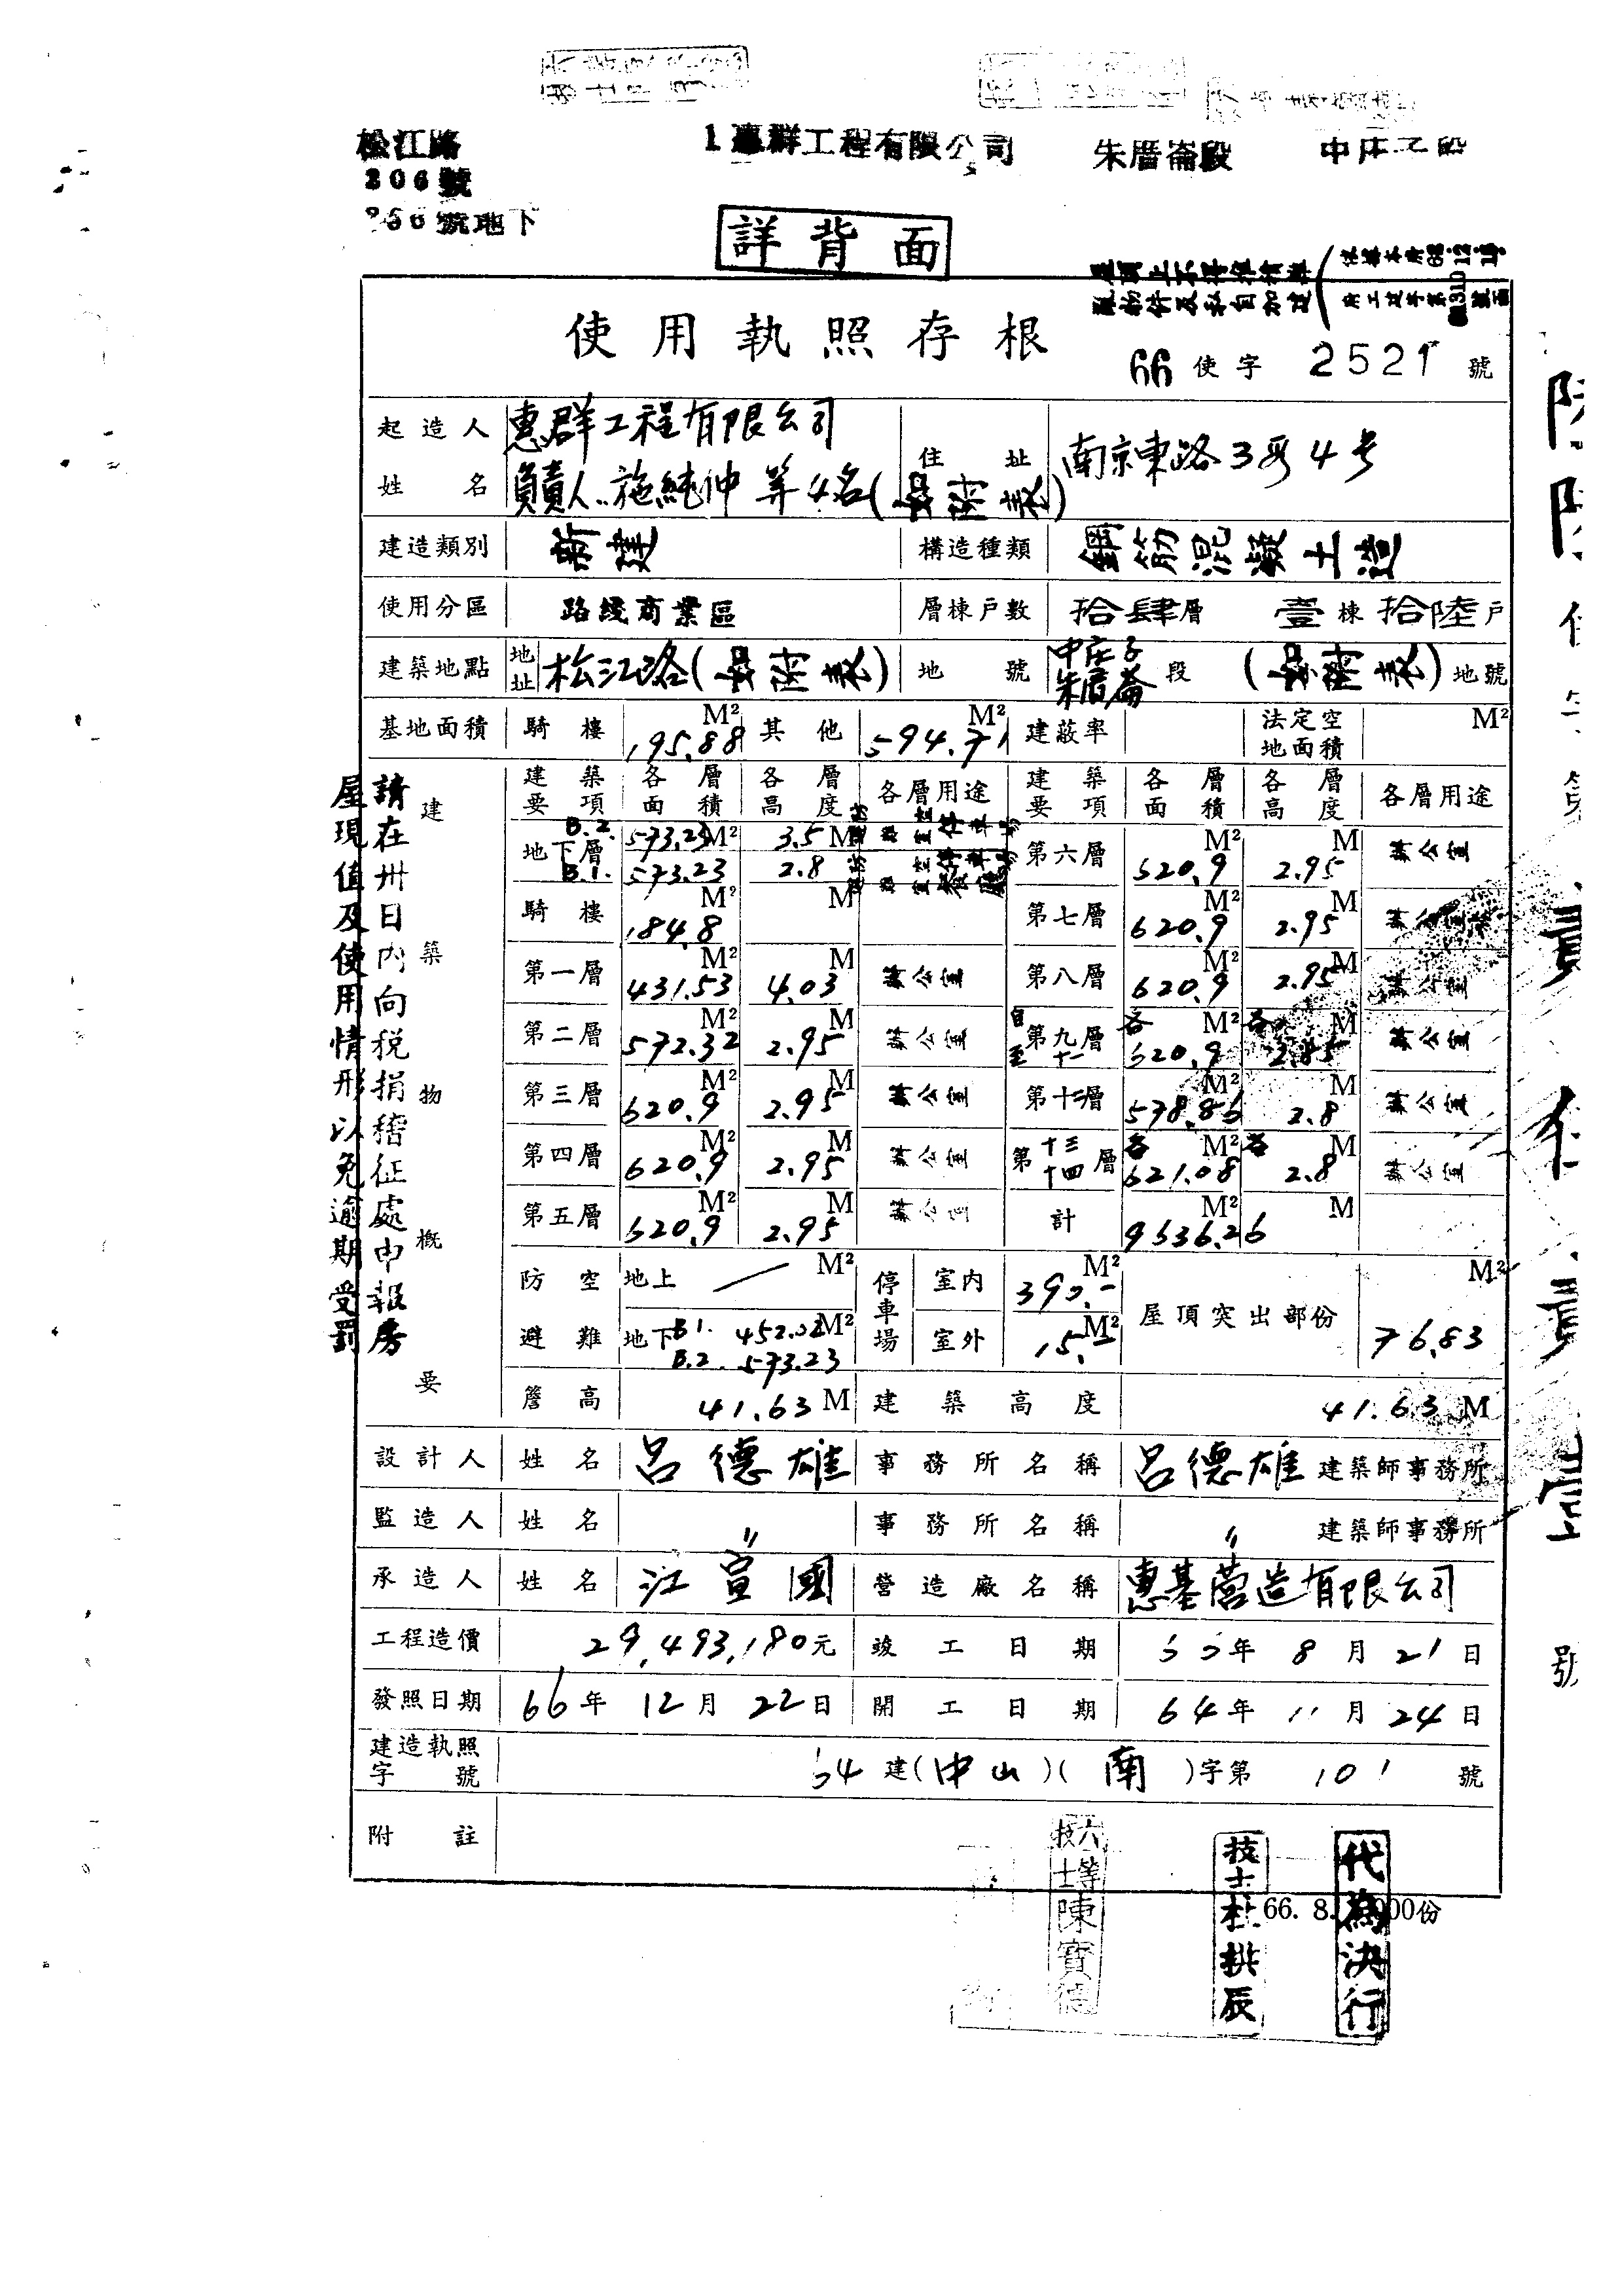 松江路
306號
號地下
1惠群工程有限公司
朱厝崙段
詳背面
屋頂上不得堆積雜
亂物件及私自加建
使用執照存根
66 使字 2521 號
起造人姓名 惠群工程有限公司 負責人 施純仲 等4名(另附表)
住址 南京東路3段4号
建造類別 新建 構造種類 鋼筋混凝土造
使用分區 路綫商業區 層棟戶數 拾肆層 壹棟 拾陸戶
建築地點 地址 松江路(另附表) 地號 中庄子 朱厝崙 段 (另附表)地號
基地面積 騎樓 195.88 M² 其他 594.71 M² 建蔽率 法定空地面積 M²
建築物概要
建築要項 各層面積 各層高度 各層用途 建築要項 各層面積 各層高度 各層用途
地下層 B.2. 573.23 M² 3.5 M
B.1. 573.23 2.8
第六層 620.9 M² 2.95 M 辦公室
騎樓 184.8 M² M 第七層 620.9 M² 2.95 M 辦公室
第一層 431.53 M² 4.03 M 辦公室 第八層 620.9 M² 2.95 M 辦公室
第二層 572.32 M² 2.95 M 辦公室 自第九層至十一 各 620.9 M² 各 2.85 M 辦公室
第三層 620.9 M² 2.95 M 辦公室 第十二層 578.86 M² 2.8 M 辦公室
第四層 620.9 M² 2.95 M 辦公室 第十三十四層 各 621.08 M² 各 2.8 M 辦公室
第五層 620.9 M² 2.95 M 辦公室 計 9636.26 M² M
防空避難 地上 / M² 停車場 室內 390.- M² 屋頂突出部份 76.83 M²
地下 B1. 452.02 M² 室外 15.- M²
B.2. 573.23
簷高 41.63 M 建築高度 41.63 M
設計人 姓名 呂德雄 事務所名稱 呂德雄 建築師事務所
監造人 姓名 〃 事務所名稱 〃 建築師事務所
承造人 姓名 江宣國 營造廠名稱 惠基營造有限公司
工程造價 29,493,180元 竣工日期 年 8月 21日
發照日期 66年 12月 22日 開工日期 64年 11月 24日
建造執照字號 64 建(中山)(南)字第 101 號
附註
請在卅日內向稅捐稽征處申報房
屋現值及使用情形以免逾期受罰
六等技士陳寶德
技士杜拱辰
代為決行
66. 8. 000份
號